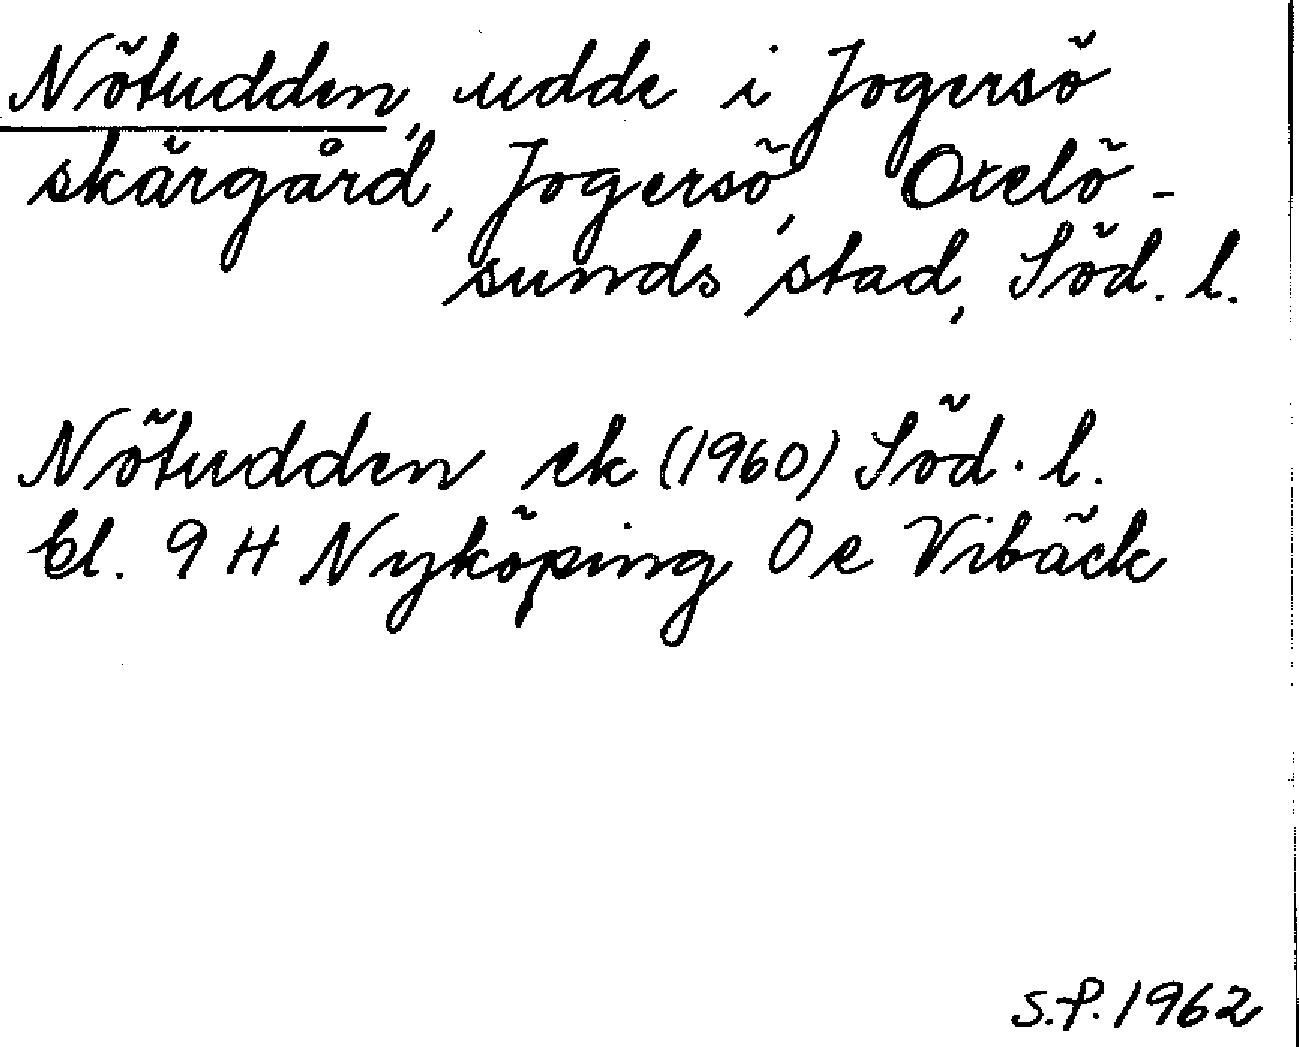 Nötudden, udde i Jogersö
skärgård, Jogersö, Oxelö-
sunds stad, Söd. l.
Nötudden ek (1960) Söd. l.
bl. 9 H Nyköping 0 e Vibäck
S.P. 1962